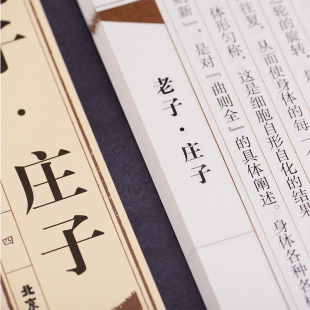 之轮的旋转，
往复，从而使身体的每一
体形匀称，这是细胞自形自化的结果
新』，是对『曲则全』的具体阐述。身体各种各
老子·庄子
子·庄子
四
北京